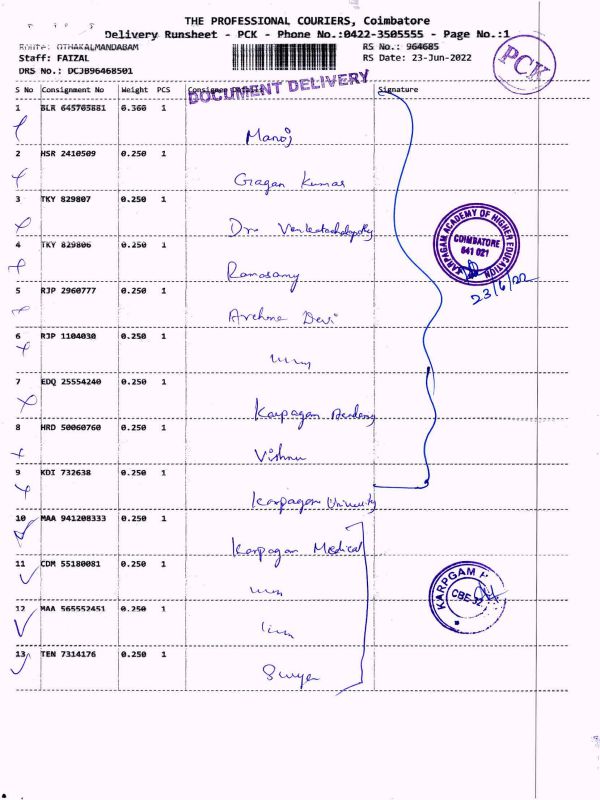 THE PROFESSIONAL COURIERS, Coimbatore
Delivery Runsheet - PCK - Phone No.:0422-3505555 - Page No.:1
Route: OTHAKALMANDABAM
RS No.: 964685
Staff: FAIZAL
RS Date: 23-Jun-2022
DRS No.: DCJB96468501
PCK
DOCUMENT DELIVERY
S No Consignment No Weight PCS Consignee Details Signature
1 BLR 645705881 0.360 1
Manoj
2 HSR 2410509 0.250 1
Gragan Kumar
3 TKY 829807 0.250 1
Dro
4 TKY 829806 0.250 1
Ramasamy
KARPAGAM ACADEMY OF HIGHER EDUCATION
COIMBATORE
641 021
23/6/22
5 RJP 2960777 0.250 1
Archana Devi
6 RJP 1104030 0.250 1
7 EDQ 25554240 0.250 1
Karpagam Academy
8 HRD 50060760 0.250 1
Vishnu
9 KDI 732638 0.250 1
Karpagam University
10 MAA 941208333 0.250 1
Karpagam Medical
11 CDM 55180081 0.250 1
KARPGAM
CBE-32
12 MAA 565552451 0.250 1
13 TEN 7314176 0.250 1
Surya